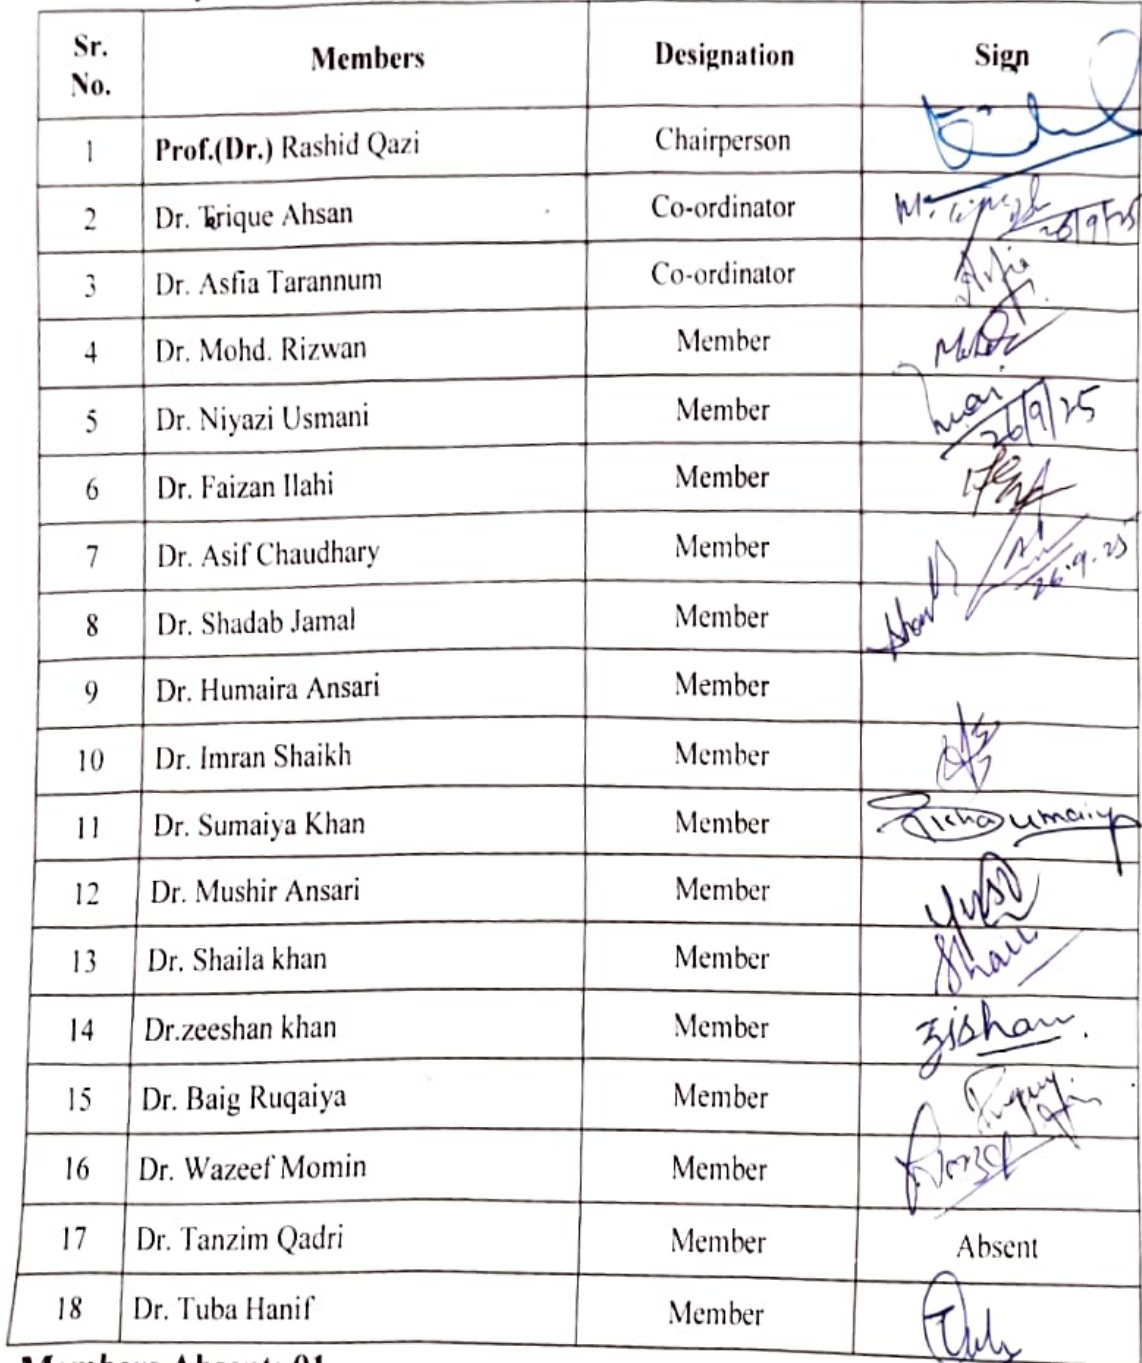 Sr. No. Members Designation Sign
1 Prof.(Dr.) Rashid Qazi Chairperson
2 Dr. Trique Ahsan Co-ordinator 26/9/25
3 Dr. Asfia Tarannum Co-ordinator Asfia
4 Dr. Mohd. Rizwan Member
5 Dr. Niyazi Usmani Member 26/9/25
6 Dr. Faizan Ilahi Member
7 Dr. Asif Chaudhary Member 26.9.25
8 Dr. Shadab Jamal Member
9 Dr. Humaira Ansari Member
10 Dr. Imran Shaikh Member
11 Dr. Sumaiya Khan Member
12 Dr. Mushir Ansari Member
13 Dr. Shaila khan Member
14 Dr.zeeshan khan Member Zishan.
15 Dr. Baig Ruqaiya Member
16 Dr. Wazeef Momin Member
17 Dr. Tanzim Qadri Member Absent
18 Dr. Tuba Hanif Member
Members Absent: 01